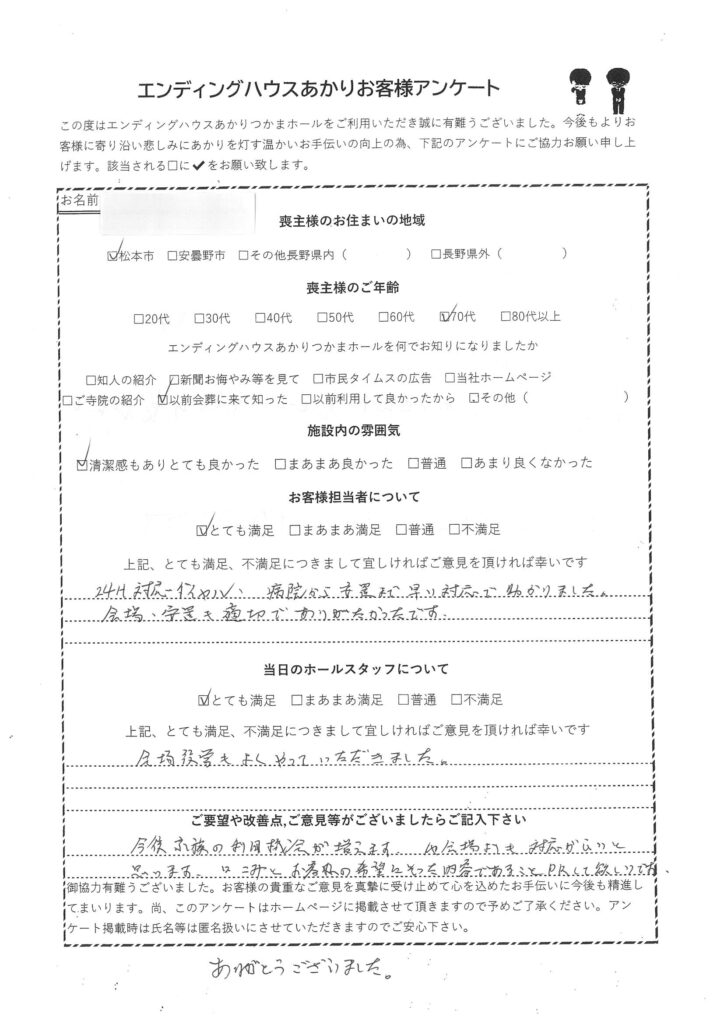 エンディングハウスあかりお客様アンケート
この度はエンディングハウスあかりつかまホールをご利用いただき誠に有難うございました。今後もよりお
客様に寄り沿い悲しみにあかりを灯す温かいお手伝いの向上の為、下記のアンケートにご協力お願い申し上
げます。該当される□に✔をお願い致します。
お名前
喪主様のお住まいの地域
☑松本市 □安曇野市 □その他長野県内（ ） □長野県外（ ）
喪主様のご年齢
□20代 □30代 □40代 □50代 □60代 ☑70代 □80代以上
エンディングハウスあかりつかまホールを何でお知りになりましたか
□知人の紹介 □新聞お悔やみ等を見て □市民タイムスの広告 □当社ホームページ
□ご寺院の紹介 ☑以前会葬に来て知った □以前利用して良かったから □その他（ ）
施設内の雰囲気
☑清潔感もありとても良かった □まあまあ良かった □普通 □あまり良くなかった
お客様担当者について
☑とても満足 □まあまあ満足 □普通 □不満足
上記、とても満足、不満足につきまして宜しければご意見を頂ければ幸いです
24H対応 病院から安置まで早い対応で助かりました。
会場、安置も適切でありがたかったです.
当日のホールスタッフについて
☑とても満足 □まあまあ満足 □普通 □不満足
上記、とても満足、不満足につきまして宜しければご意見を頂ければ幸いです
会場設営もよくやっていただきました。
ご要望や改善点,ご意見等がございましたらご記入下さい
今後家族の利用機会が増えます、他会場よりも対応がよいと
思います、口こみとお客様の希望にそった内容であることPRして欲しいです
御協力有難うございました。お客様の貴重なご意見を真摯に受け止めて心を込めたお手伝いに今後も精進し
てまいります。尚、このアンケートはホームページに掲載させて頂きますので予めご了承ください。アン
ケート掲載時は氏名等は匿名扱いにさせていただきますのでご安心下さい。
ありがとうございました。